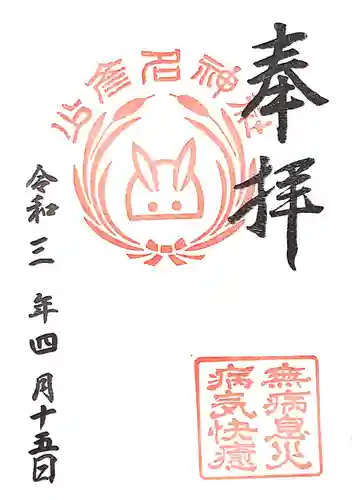 奉拝
名神社
令和三年四月十五日
無病息災
病気快癒